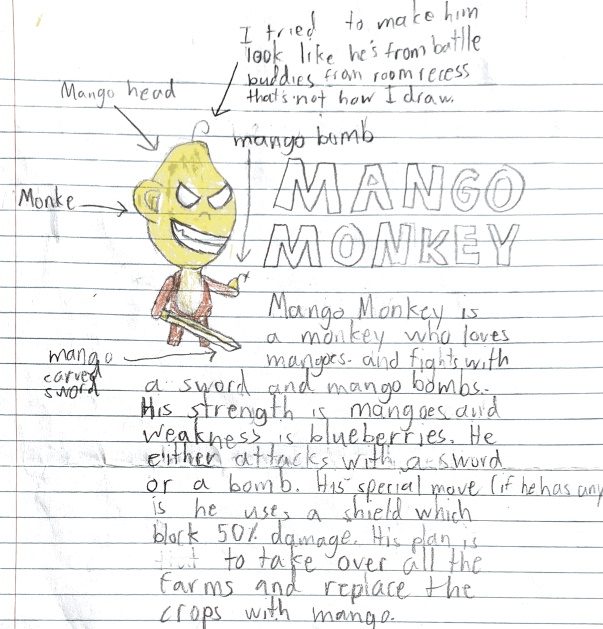 I tried to make him
look like he's from battle
buddies from room recess
that's not how I draw.
Mango head
mango bomb
MANGO
MONKEY
Monke
mango
carved
sword
Mango Monkey is
a monkey who loves
mangoes. and fights with
a sword and mango bombs.
His strength is mangoes and
weakness is blueberries. He
either attacks with a sword
or a bomb. His special move (if he has any
is he uses a shield which
block 50% damage. His plan is
to take over all the
farms and replace the
crops with mango.